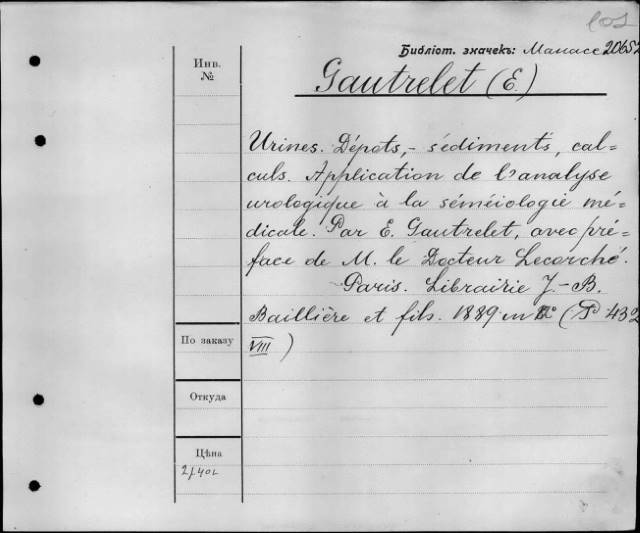 Библіот. значекъ: 2065
Инв.
№
Gautrelet (E.)
Urines. Dépots,- sédiments, cal=
culs. Application de l'analyse
urologique à la séméiologie mé=
dicale. Par E. Gautrelet, avec pré=
face de M. le Docteur Lecorché.
Paris. Librairie J.-B.
Baillière et fils. 1889 in (P 432
VIII)
По заказу
Откуда
Цѣна